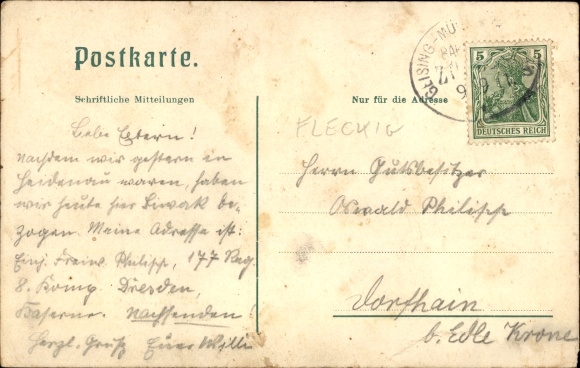 Postkarte.
Schriftliche Mitteilungen
Nur für die Adresse
5 5
DEUTSCHES REICH
GEISING-MÜ
9
FLECKIG
Liebe Eltern!
Nachdem wir gestern in
Heidenau waren, haben
wir heute hier Biwak be-
zogen. Meine Adresse ist:
Einj. Freiw. Philipp, 177 Reg.
8. Komp. Dresden,
Kaserne. Nachsenden!
Herzl. Gruß Euer Willi
Herrn Gutsbesitzer
Oswald Philipp
Dorfhain
b. Edle Krone